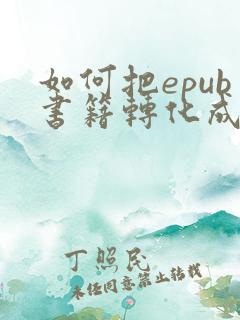 如何把epub
書籍轉化成
丁照民
未经同意禁止转载